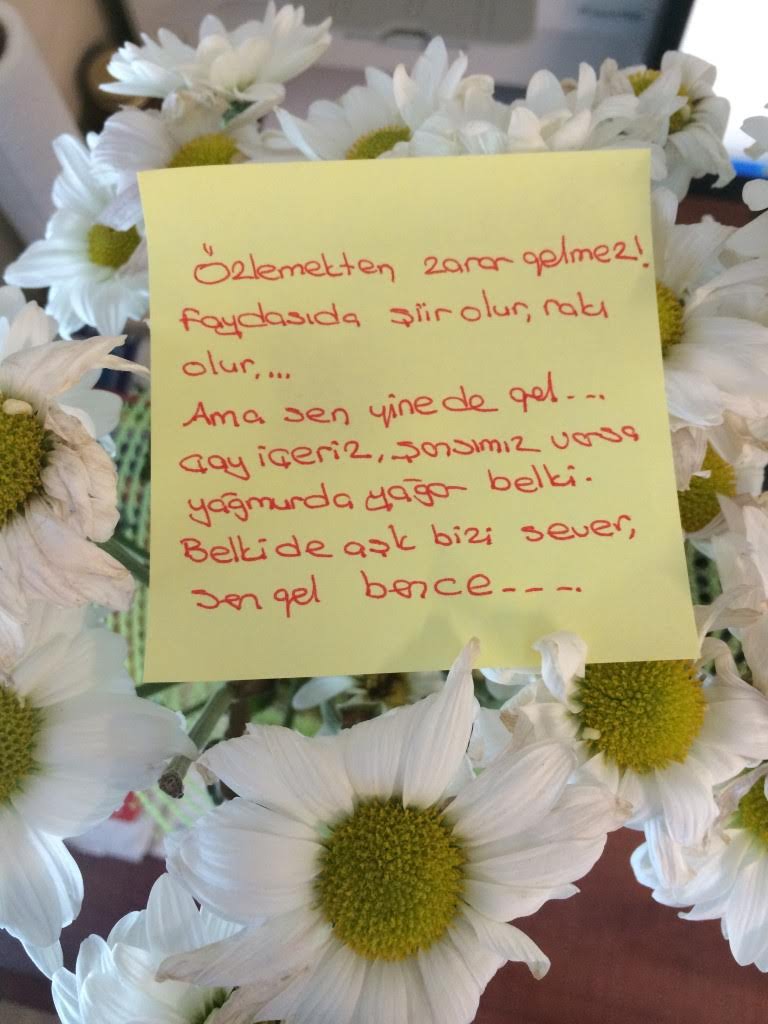 Özlemekten zarar gelmez!
faydasıda şiir olur, rakı
olur,...
Ama sen yinede gel...
çay içeriz, şansımız varsa
yağmurda yağar belki.
Belkide aşk bizi sever,
sen gel bence----.